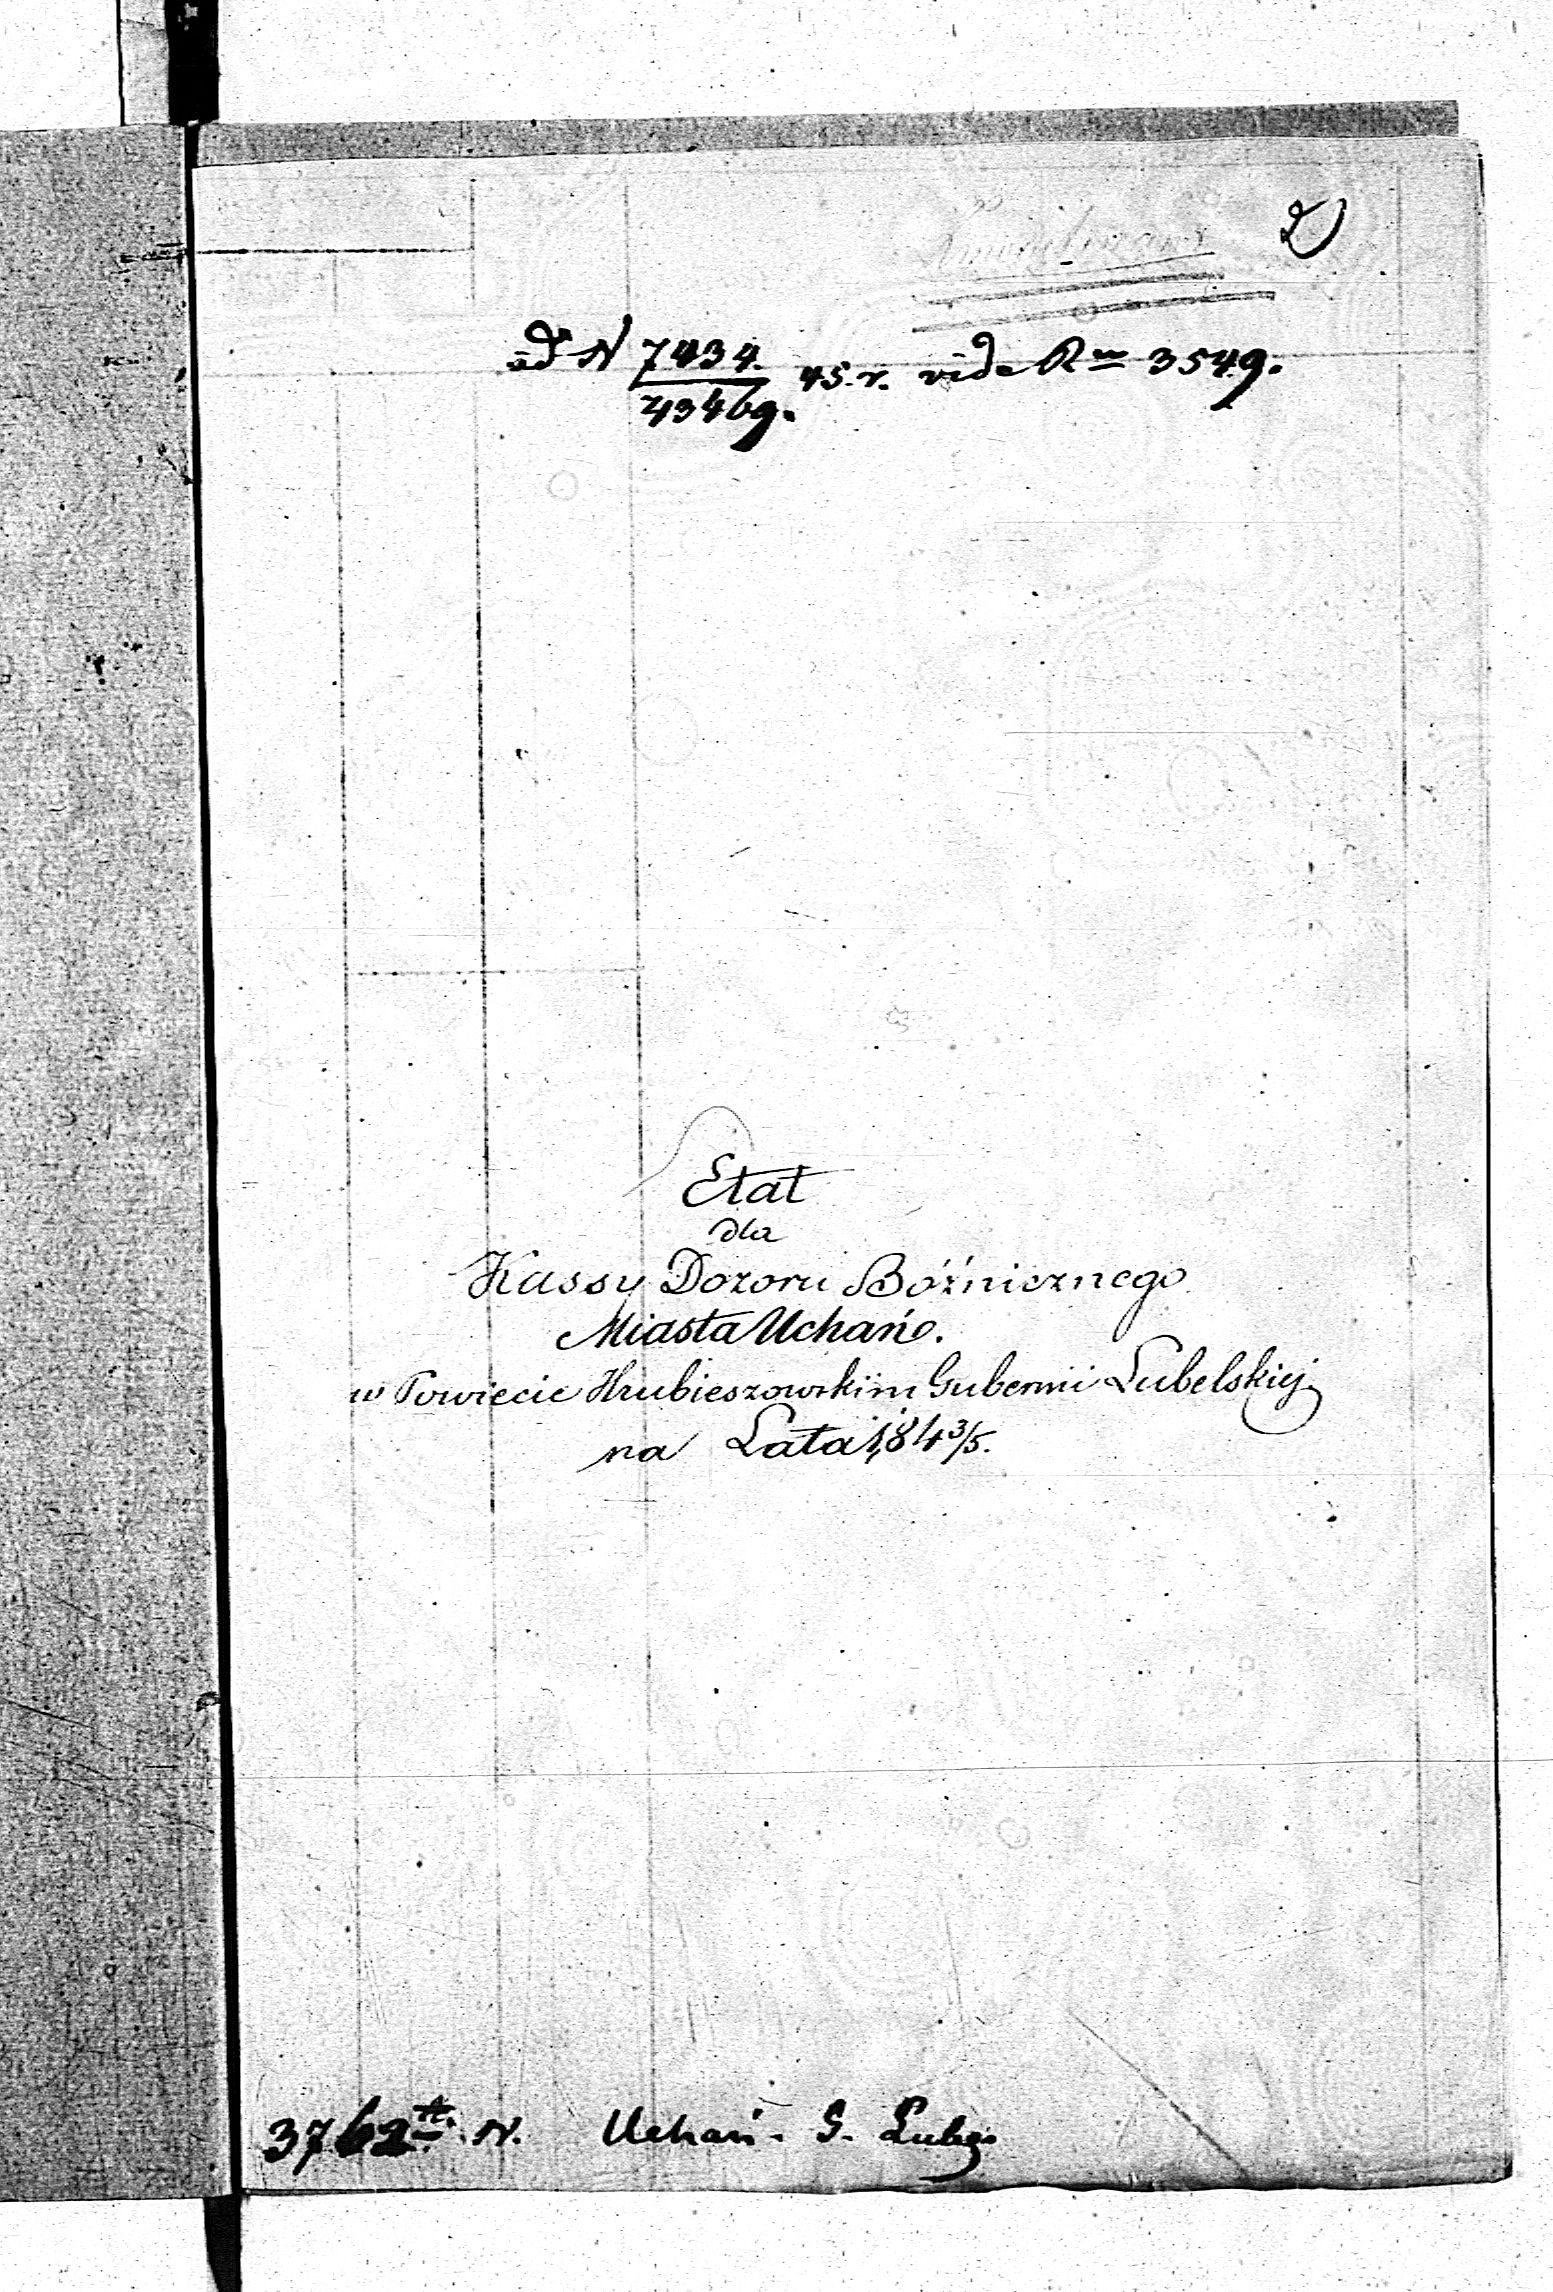 2)
ad N 7434./43469. 45.r. vide R 3549.
Etat
dla
Kassy Dozoru Bóźnicznego
Miasta Uchań.
w Powiecie Hrubieszowskim Gubernii Lubelskiej
na Lata 1843/5.
3762 A. N. Uchań. G. Lubego